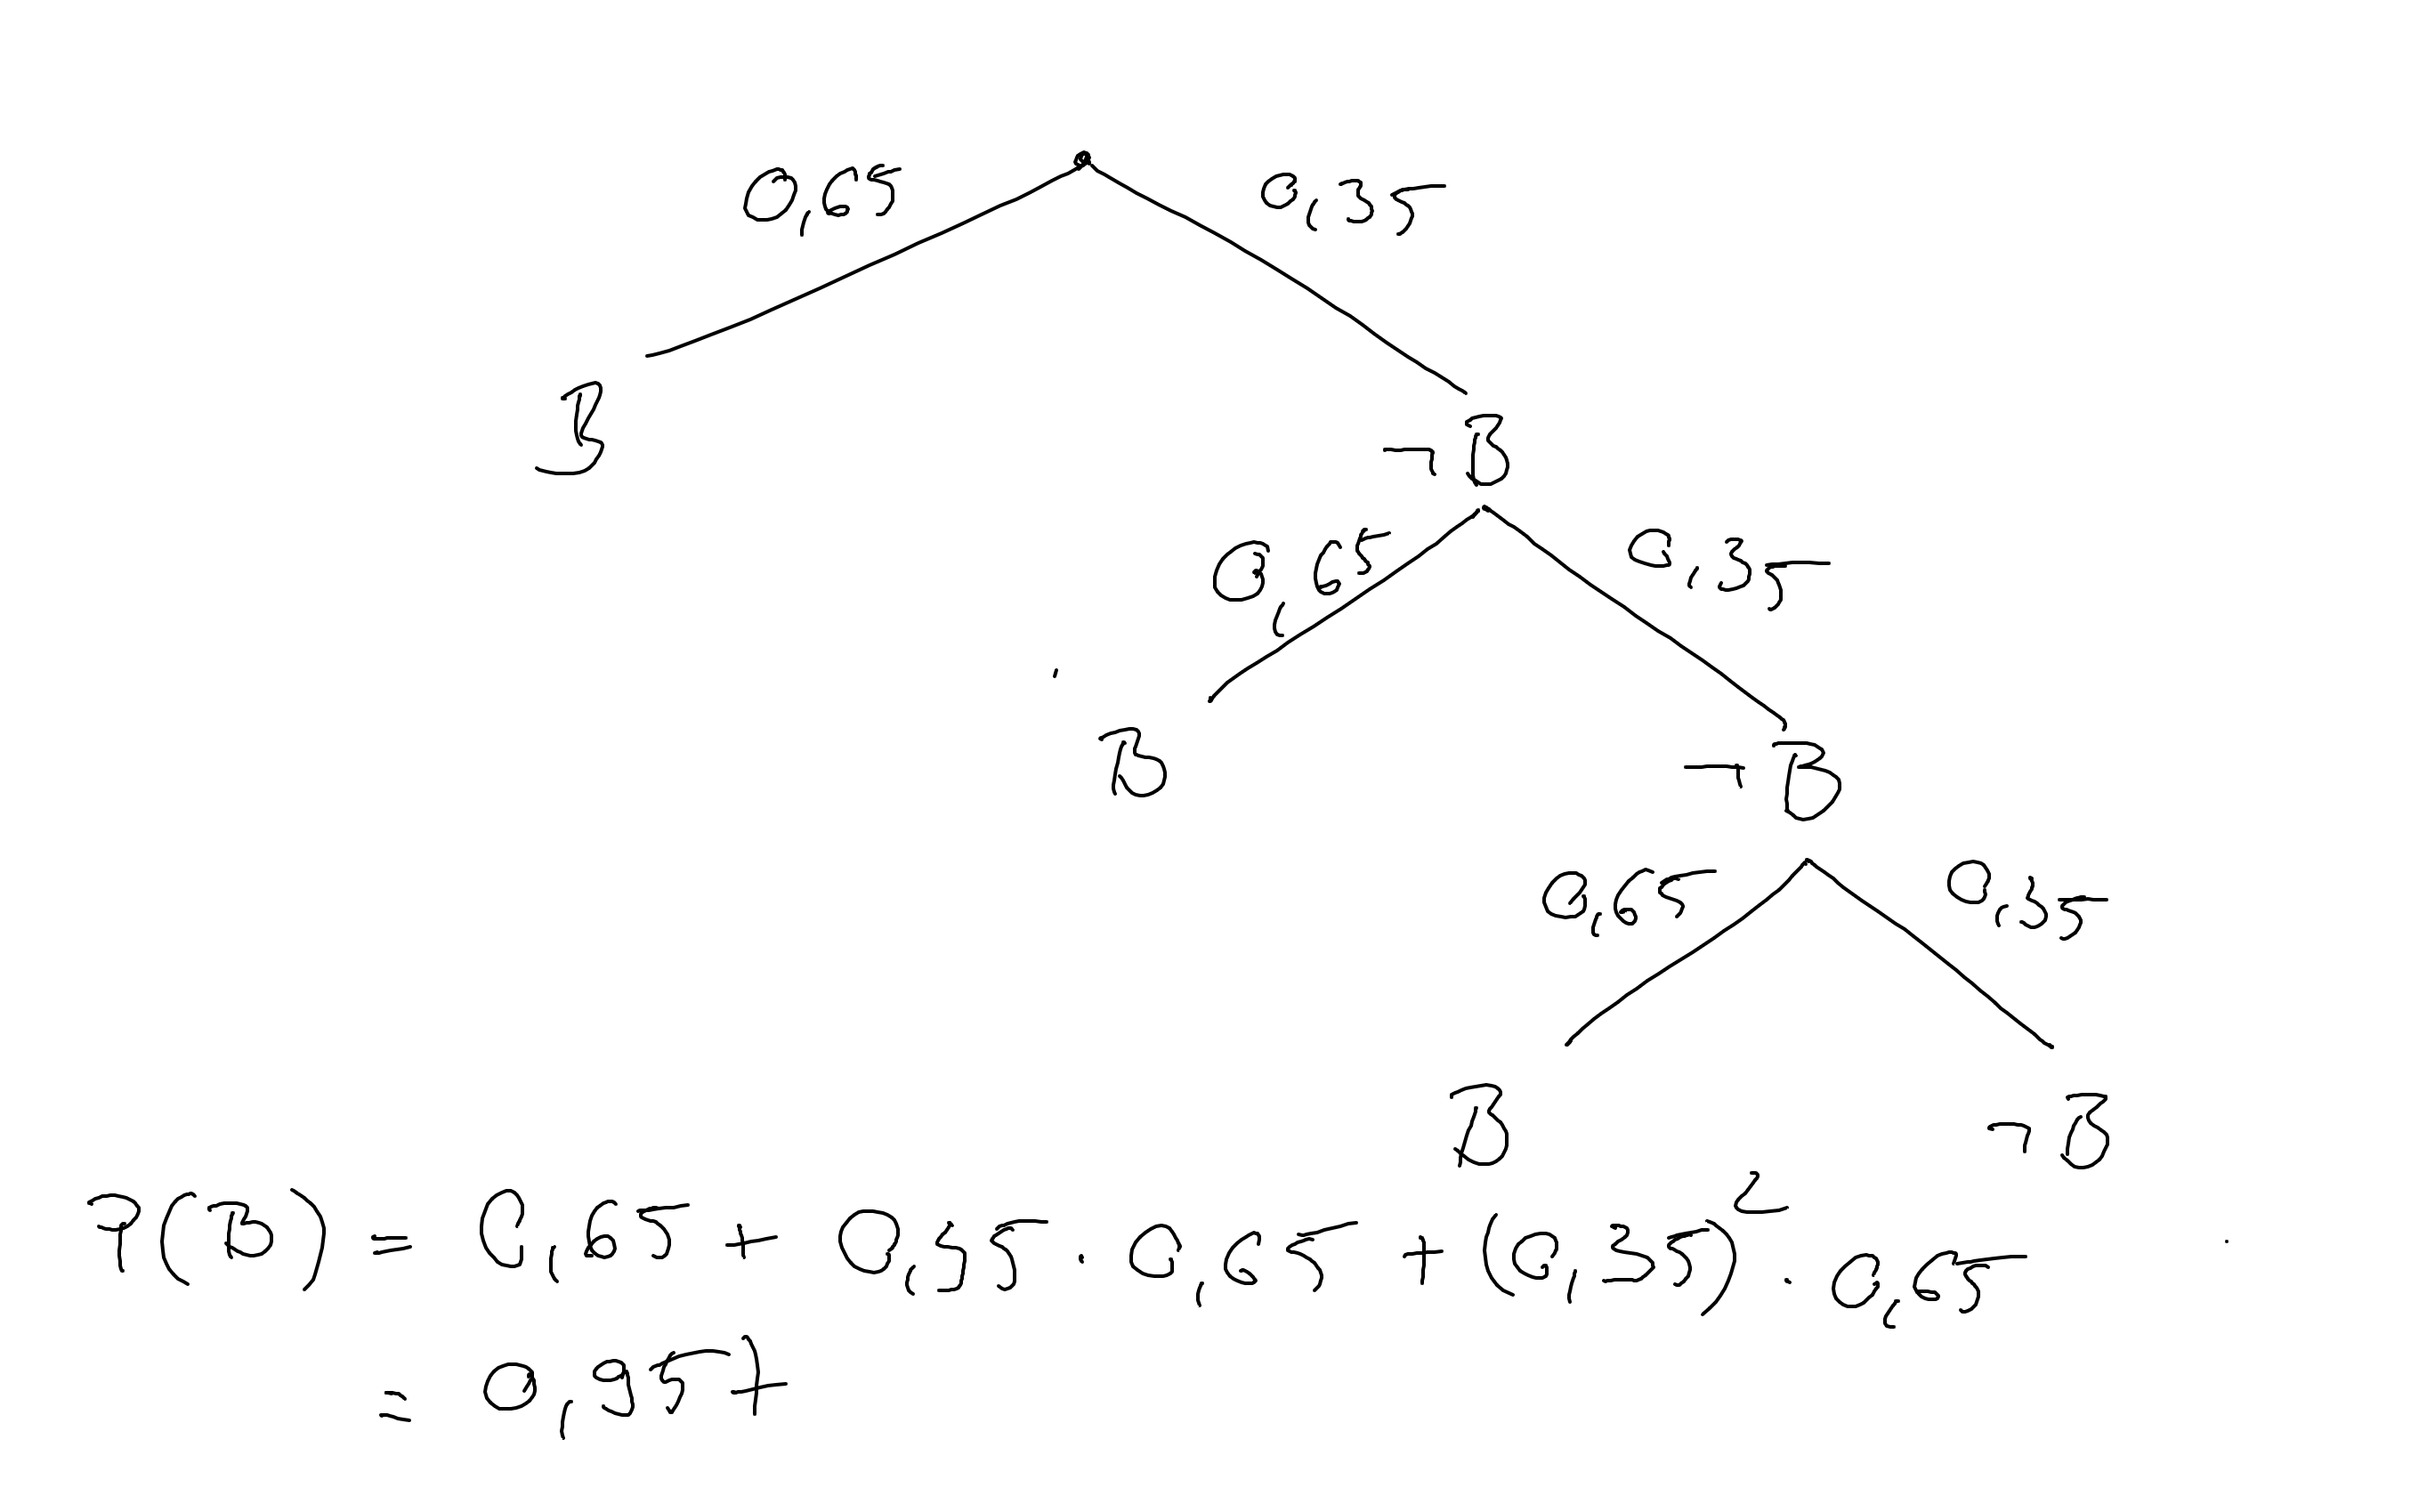 0,65 0,35
B ¬B
0,65 0,35
B ¬B
0,65 0,35
B ¬B
P(B) = 0,65 + 0,35 · 0,65 + (0,35)² · 0,65
= 0,957